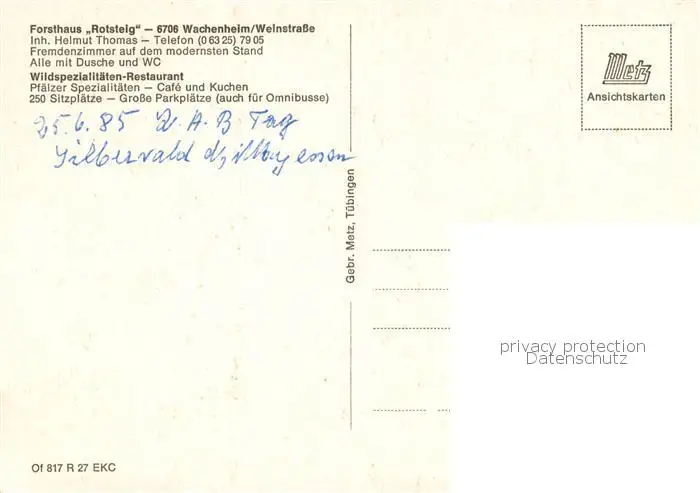 Forsthaus „Rotsteig“ — 6706 Wachenheim/Weinstraße
Inh. Helmut Thomas — Telefon (0 63 25) 79 05
Fremdenzimmer auf dem modernsten Stand
Alle mit Dusche und WC
Wildspezialitäten-Restaurant
Pfälzer Spezialitäten — Café und Kuchen
250 Sitzplätze — Große Parkplätze (auch für Omnibusse)
25.6.85 A. B Tag
Silberwald essen
Metz
Ansichtskarten
Gebr. Metz, Tübingen
privacy protection
Datenschutz
Of 817 R 27 EKC